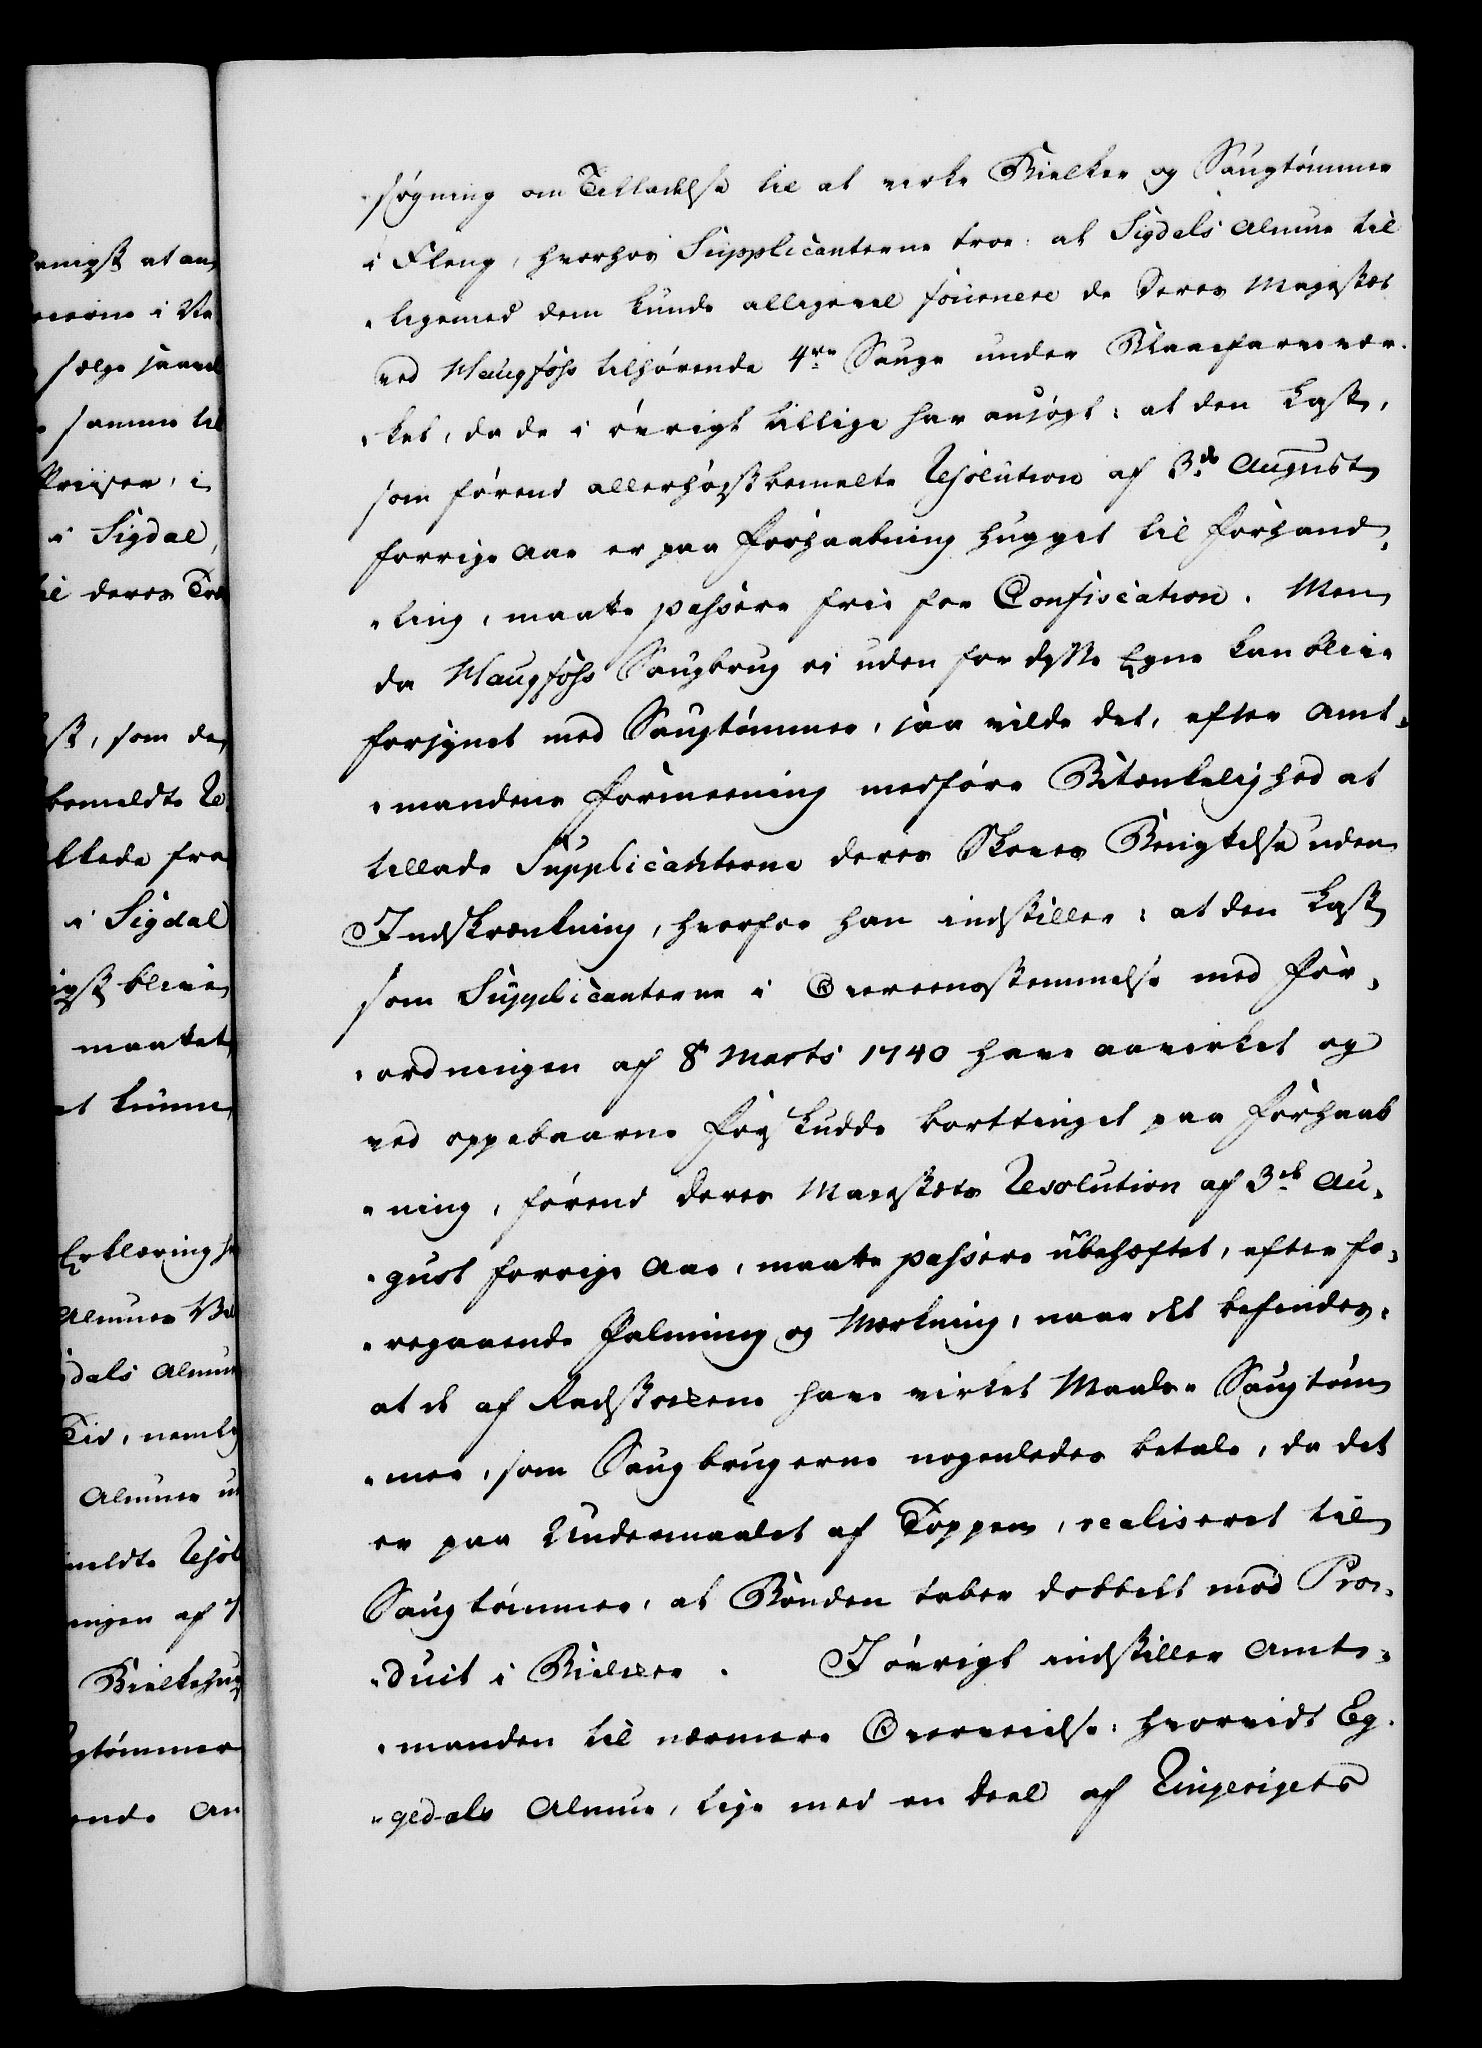 søgning om Tilladelse til at virke Bielker og Saugtømmer
i Fleng, hvorhos Supplicanterne troe: at Sigdals Almue til
ligemed dem kunde alligevel fournere de Deres Majestæt
ved Haugfoss tilhørende 4re Sauge under Blaafarvevær-
ket, da de i øvrigt tillige har ansøgt: at den Last,
som førend allerhøystbemelte Resolution af 3die August
forrige Aar er paa Forhaabning hugget til Forhand-
ling, maatte passere frie for Confiscation. Men
da Haugfoss Saugbrug ei uden for disse Egne kan blive
forsynet med Saugtømmer, saa vilde det, efter Amt-
mandens Formeening medføre Betænkelighed at
tillade Supplicanterne deres Skoves Benyttelse uden
Indskrænkning, hvorfor han indstiller: at den Last
som Supplicanterne i Overeensstemmelse med For-
ordningen af 8de Marts 1740 have aavirket og
ved oppebaarne Forskudde borttinget paa Forhaab
ning, førend Deres Majestæts Resolution af 3die Au-
gust forrige Aar, maatte passere ubehæftet, efter fo-
regaaende Falning og Mærkning, naar det befindes,
at de af Rodstokkene have virket Maals Saugtøm
mer, som Saugbrugerne nogenledes betale, da det
er paa Undermaalet af Toppen, realiseret til
Saugtømmer, at Bonden taber dobbelt mod Pro-
duct i Bielker. I øvrigt indstiller Amt-
manden til nærmere Overveielse: hvorvidt Eg-
gedals Almue, lige med en Deel af Ringerigets
ængst at an
i Sigdal,
til deres
st, som de
bemeldte Re
i Sigdal
maattet
at kunne
Erklæring
Almues
dals Almue
Tid, nemlig
Almues
meldte Resol
ningen af
Bielkehug
gtømmer
ende An